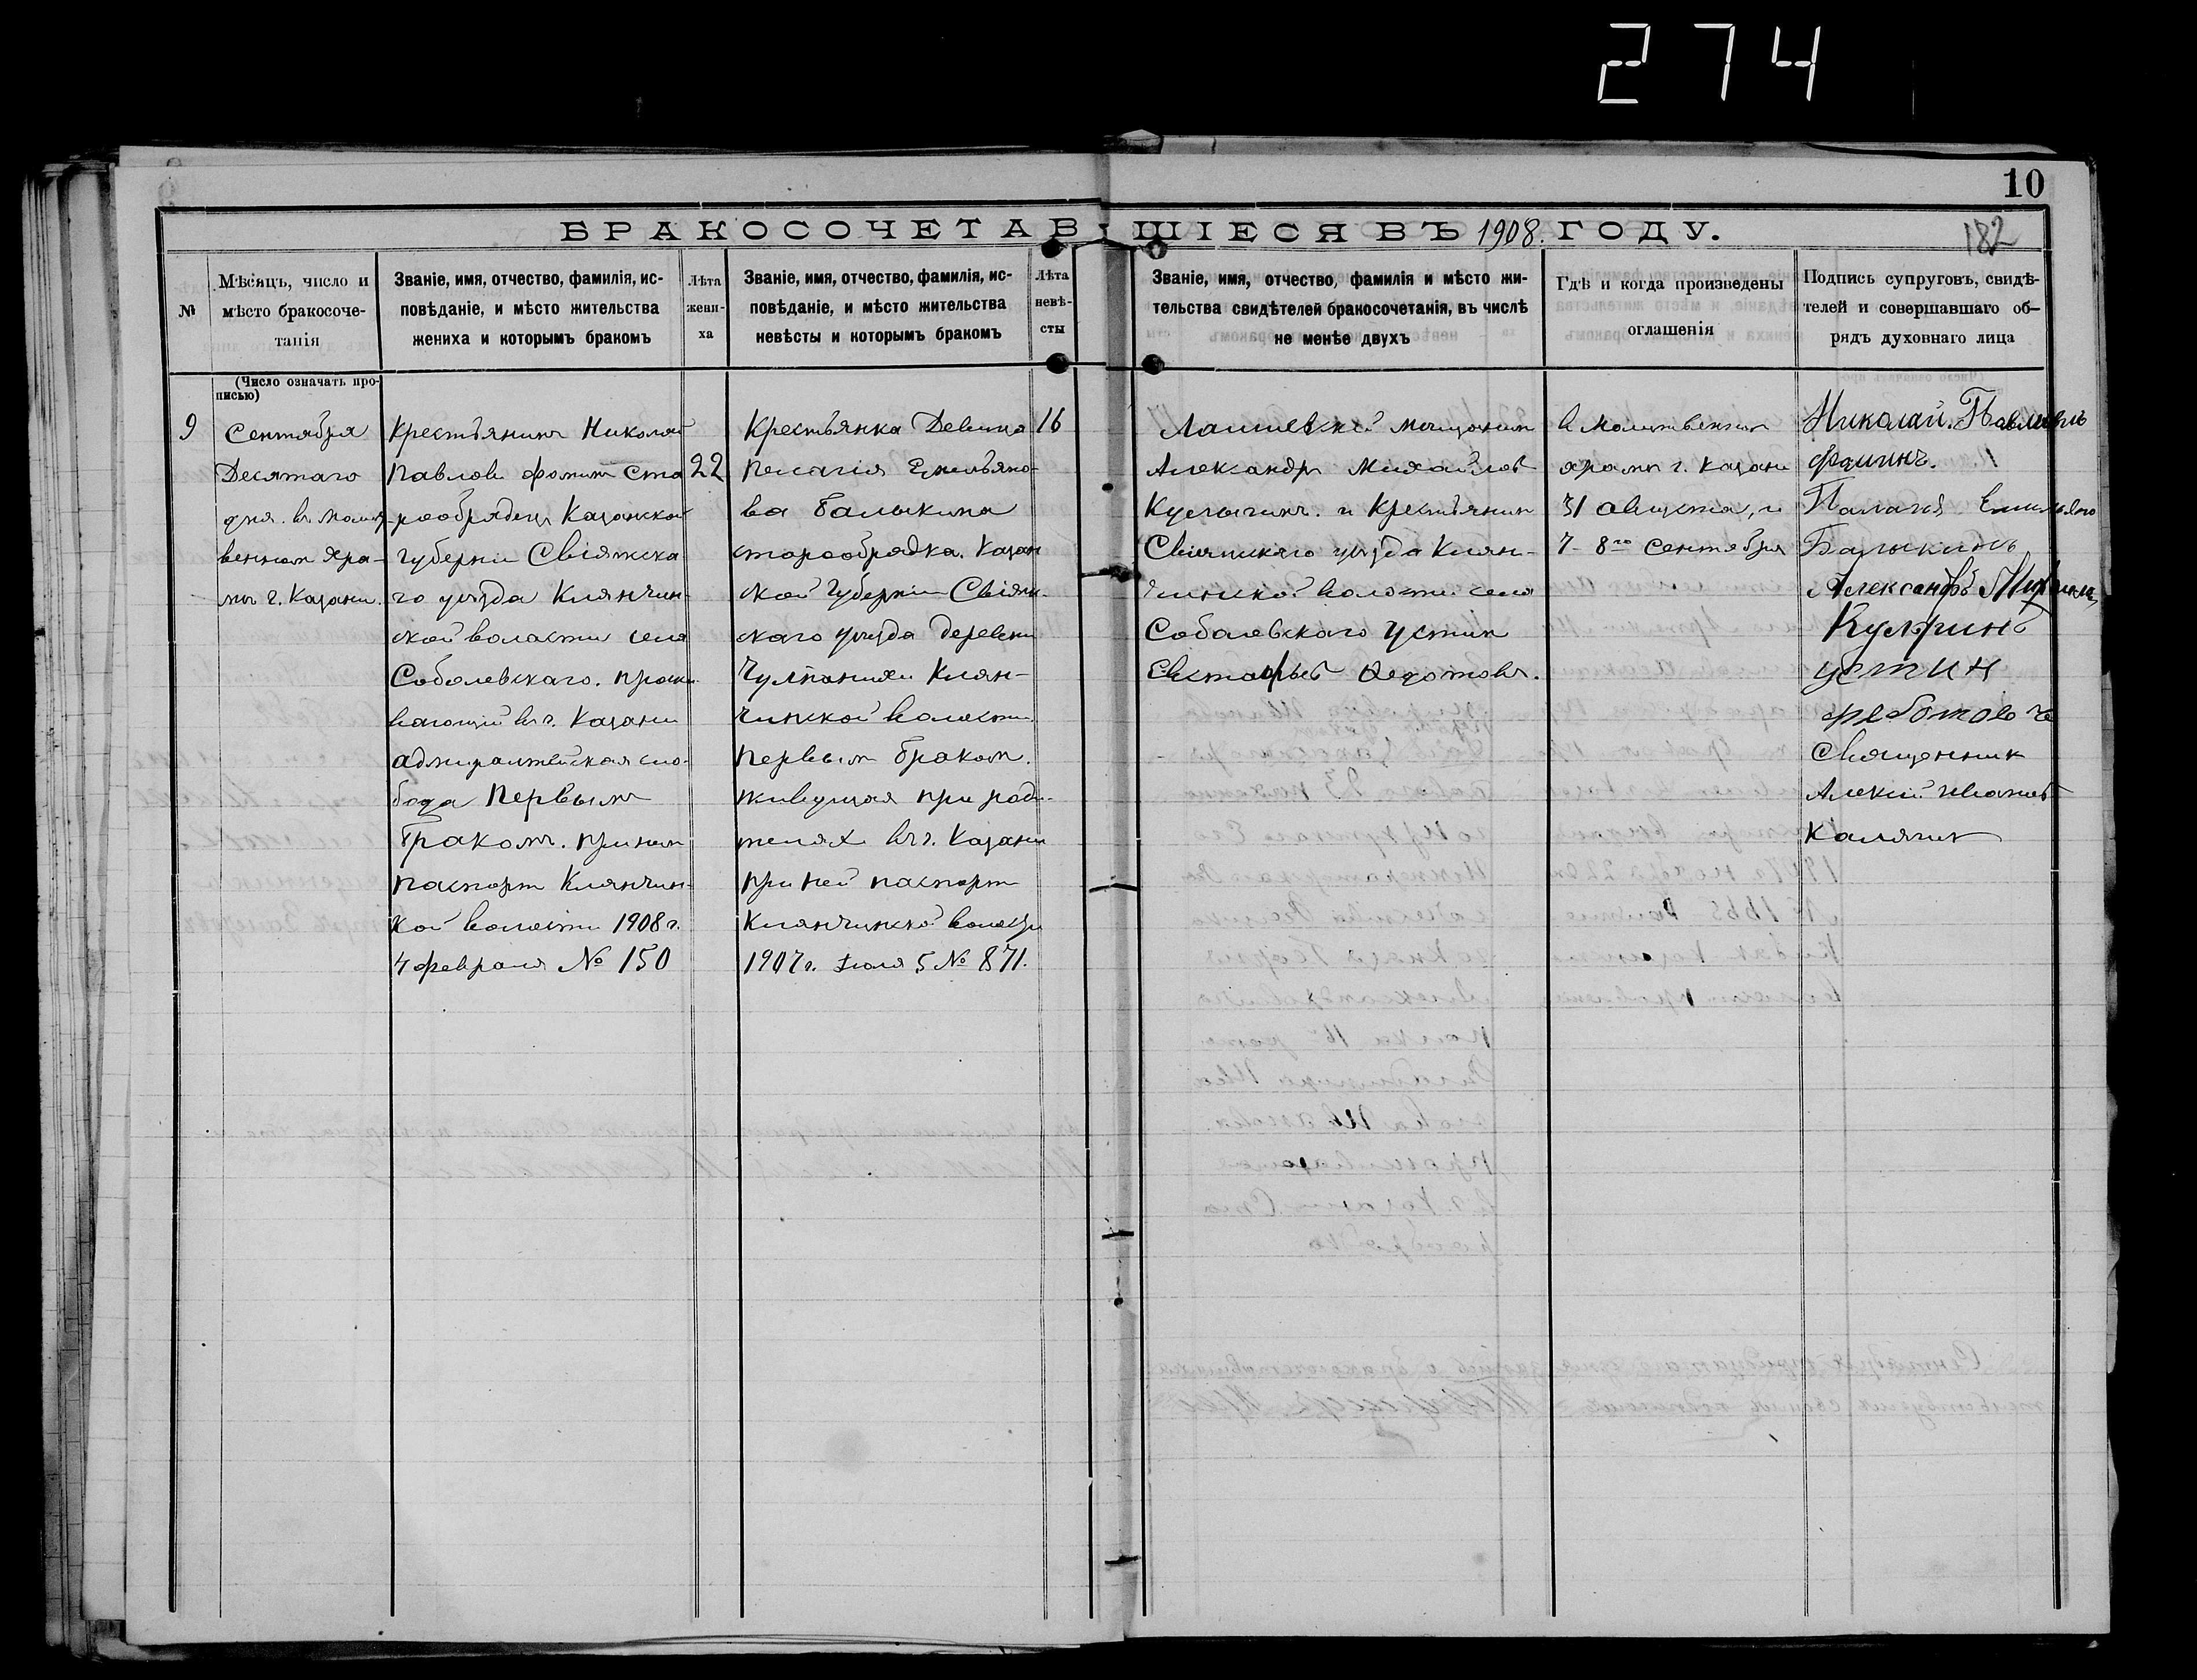 274
10
БРАКОСОЧЕТАВШІЕСЯ ВЪ 1908. ГОДУ.
182
№
Мѣсяцъ, число и
мѣсто бракосоче-
танія
Званіе, имя, отчество, фамилія, ис-
повѣданіе, и мѣсто жительства
жениха и которымъ бракомъ
Лѣта
жени-
ха
Званіе, имя, отчество, фамилія, ис-
повѣданіе, и мѣсто жительства
невѣсты и которымъ бракомъ
Лѣта
невѣ-
сты
Званіе, имя, отчество, фамилія и мѣсто жи-
тельства свидѣтелей бракосочетанія, въ числѣ
не менѣе двухъ
Гдѣ и когда произведены
оглашенія
Подпись супруговъ, свидѣ-
телей и совершавшаго об-
рядъ духовнаго лица
(Число означать про-
писью)
9
Сентября
Десятаго
дня. въ молит-
венном хра-
мѣ г. Казани.
Крестьянинъ Николай
Павловъ Фоминъ Ста
рообрядецъ Казанской
губерніи Свіяжска
го уѣзда Клянчин-
ской волости села
Соболевскаго. прожи-
вающій въ г. Казани
адмиралтейская сло-
бода Первымъ
бракомъ. при нем
паспорт Клянчин-
кой волости 1908 г.
4 февраля № 150
22
Крестьянка Девица
Пелагія Емельяно-
ва Балыкина
старообрядка. Казан
ской Губерніи Свіяж-
скаго уѣзда деревни
Клян-
чинской волости
первым браком.
живущая при роди-
телях в г. Казани
при ней паспорт
Клянчинской волости
1907 г. Іюля 5 № 871.
16
Лаишевскій мещанин
Александр Михайлов
и Крестьянин
Свіяжскаго уѣзда Клян-
чинской волости села
Соболевскаго Устин
Евстафьев Федотовъ.
в Молитвенном
храмѣ г. Казани
31 августа, и
7 - 8го Сентября
Николай. Павловъ
Фоминъ.
Палагея Емельяно
Балыкинъ
Александръ
Устин
Федотовъ
Священник
Алексій Иванов
Калягин